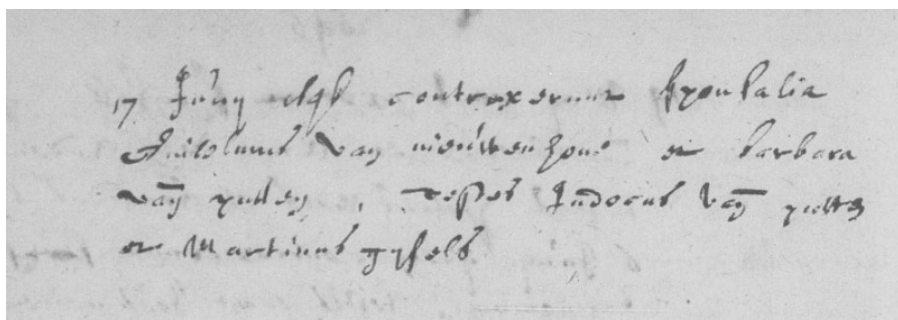 17 Junij contraxerunt sponsalia
van nieuwenhove et barbara
van putten, Testes Judocus van putte
et Martinus gysels